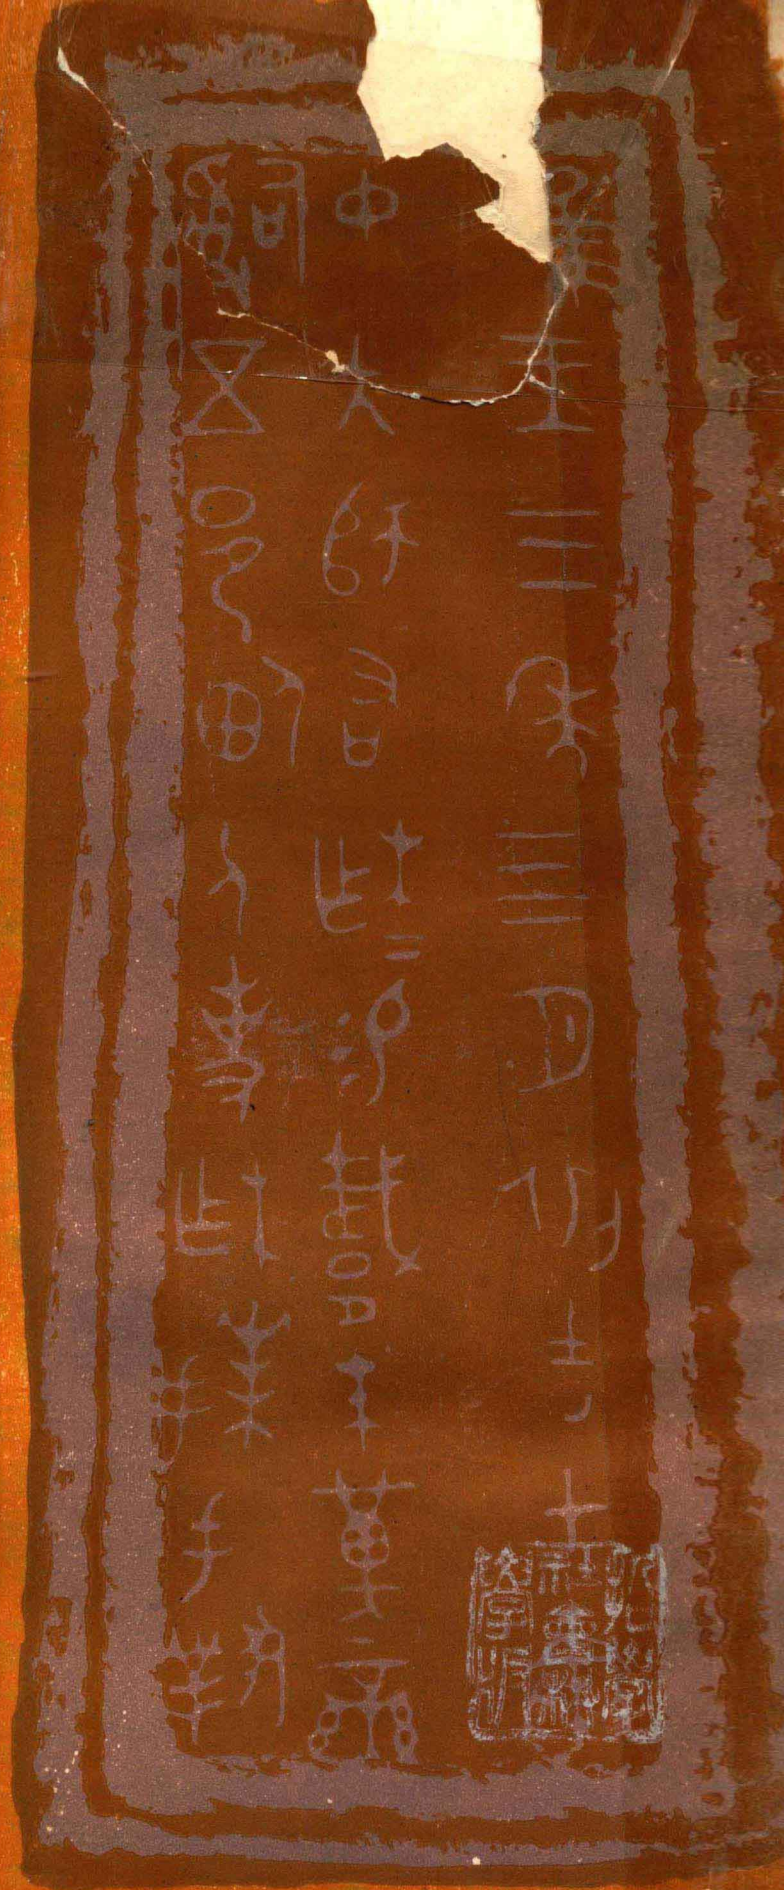 隹王三年四月初吉甲
中大師右柞=易載朱黃䜌
𤔲五邑佃人事柞拜手對